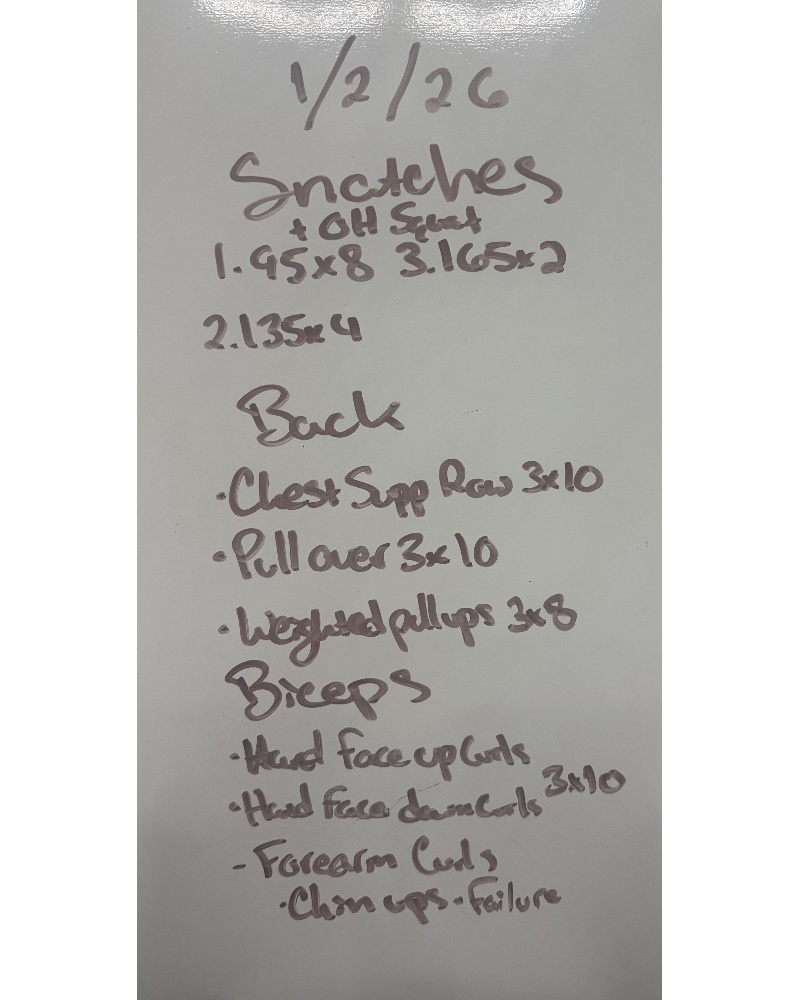 1/2/26
Snatches
+ OH Squat
1. 95x8 3. 165x2
2. 135x4
Back
· Chest Supp Row 3x10
· Pull over 3x10
· Weighted pull ups 3x8
Biceps
· Hand face up Curls
· Hand face down Curls 3x10
- Forearm Curls
· Chin ups - Failure